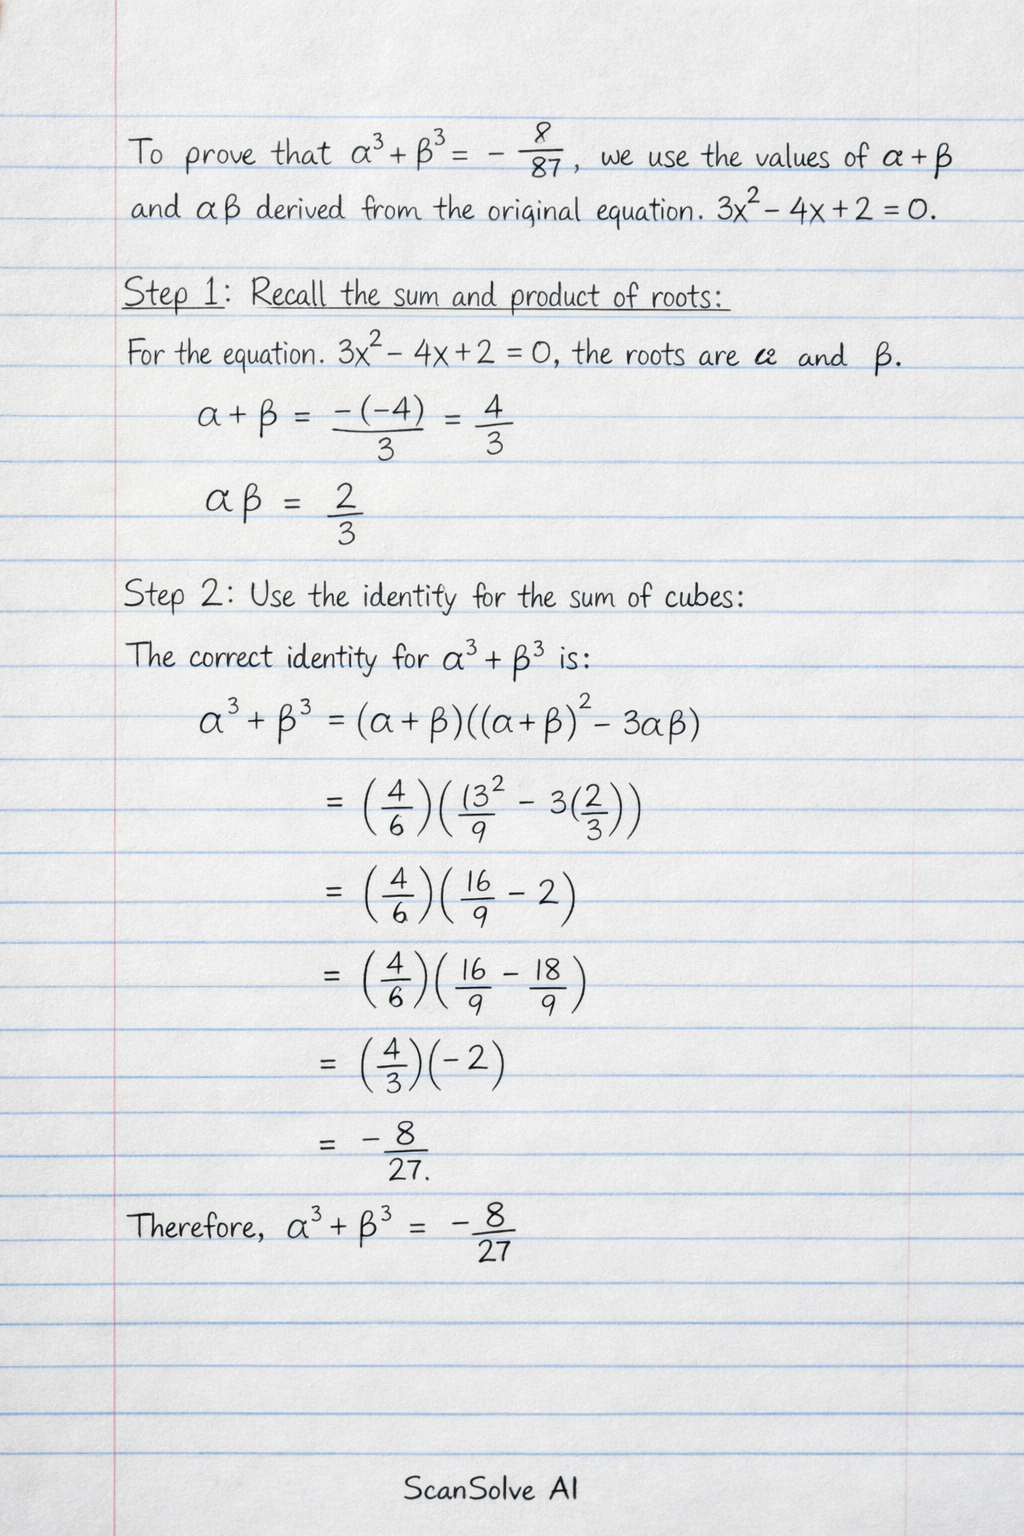 To prove that α³ + β³ = - 8/87, we use the values of α + β
and αβ derived from the original equation. 3x² - 4x + 2 = 0.
Step 1: Recall the sum and product of roots:
For the equation. 3x² - 4x + 2 = 0, the roots are α and β.
α + β = -(-4)/3 = 4/3
αβ = 2/3
Step 2: Use the identity for the sum of cubes:
The correct identity for α³ + β³ is:
α³ + β³ = (α + β)((α + β)² - 3αβ)
= (4/6)(13²/9 - 3(2/3))
= (4/6)(16/9 - 2)
= (4/6)(16/9 - 18/9)
= (4/3)(-2)
= - 8/27.
Therefore, α³ + β³ = - 8/27
ScanSolve AI